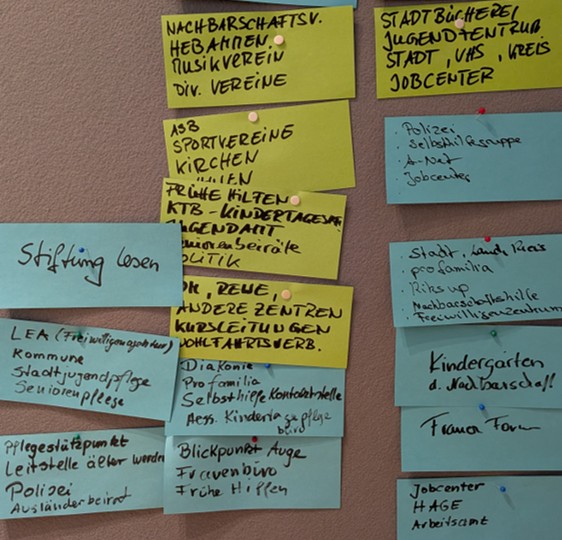 NACHBARSCHAFTSV.
HEBAMMEN
MUSIKVEREIN
Div. VEREINE
STADTBÜCHEREI
JUGENDZENTRUM
STADT, VHS, KREIS
JOBCENTER
ASB
SPORTVEREINE
KIRCHEN
. Polizei
. Selbsthilfegruppe
. A-Net
. Jobcenter
FRÜHE HILFEN
KTB - KINDERTAGES
JUGENDAMT
Seniorenbeiräte
POLITIK
Stiftung Lesen
. Stadt, Land Kreis
. pro familia
. Nachbarschaftshilfe
. Freiwilligenzentrum
, REWE,
ANDERE ZENTREN
KURSLEITUNGEN
WOHLFAHRTSVERB.
LEA (Freiwilligenagentur)
Kommune
Stadtjugendpflege
Seniorenpflege
Diakonie
Pro familia
Selbsthilfe Kontaktstelle
Kindergärten
d. Nachbarschaft
Pflegestützpunkt
Leitstelle älter werden
Polizei
Ausländerbeirat
Blickpunkt Auge
Frauenbüro
Frühe Hilfen
Jobcenter
HAGE
Arbeitsamt